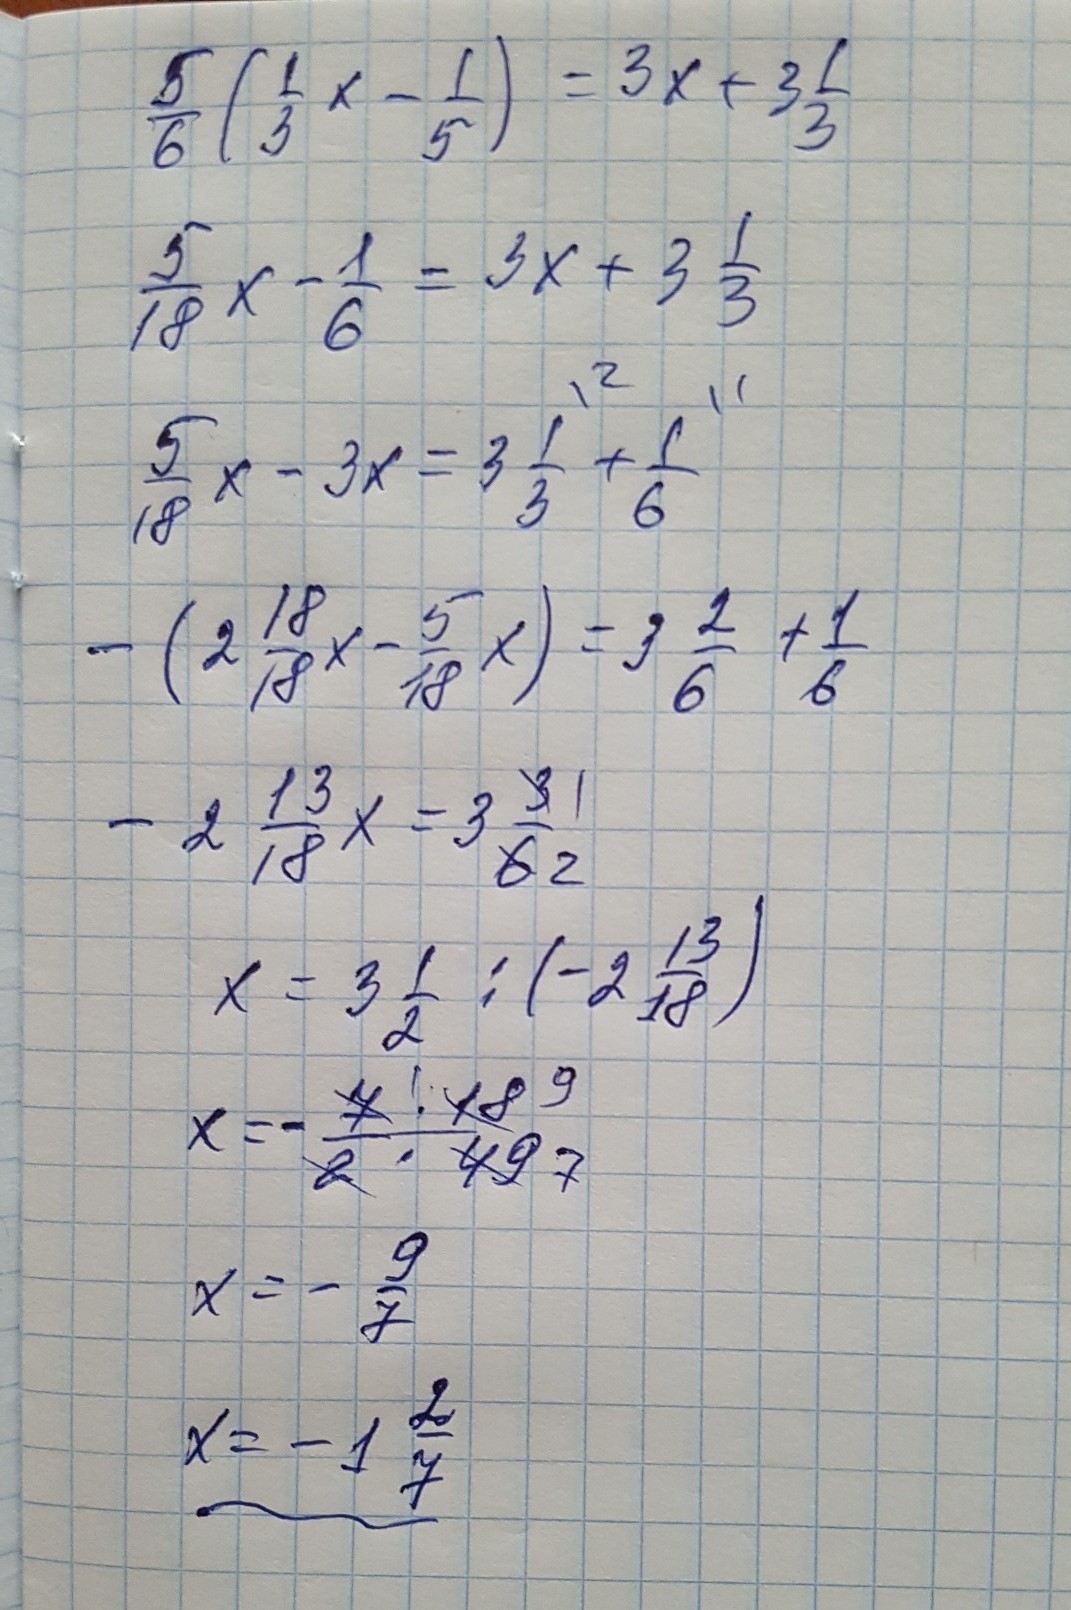 5/6 (1/3 x - 1/5) = 3x + 3 1/3
5/18 x - 1/6 = 3x + 3 1/3
5/18 x - 3x = 3 1/3 \2 + 1/6 \1
- (2 18/18 x - 5/18 x) = 3 2/6 + 1/6
- 2 13/18 x = 3 3/6 1/2
x = 3 1/2 : (- 2 13/18)
x = - 7 1 · 18 9 / 2 · 49 7
x = - 9/7
x = - 1 2/7